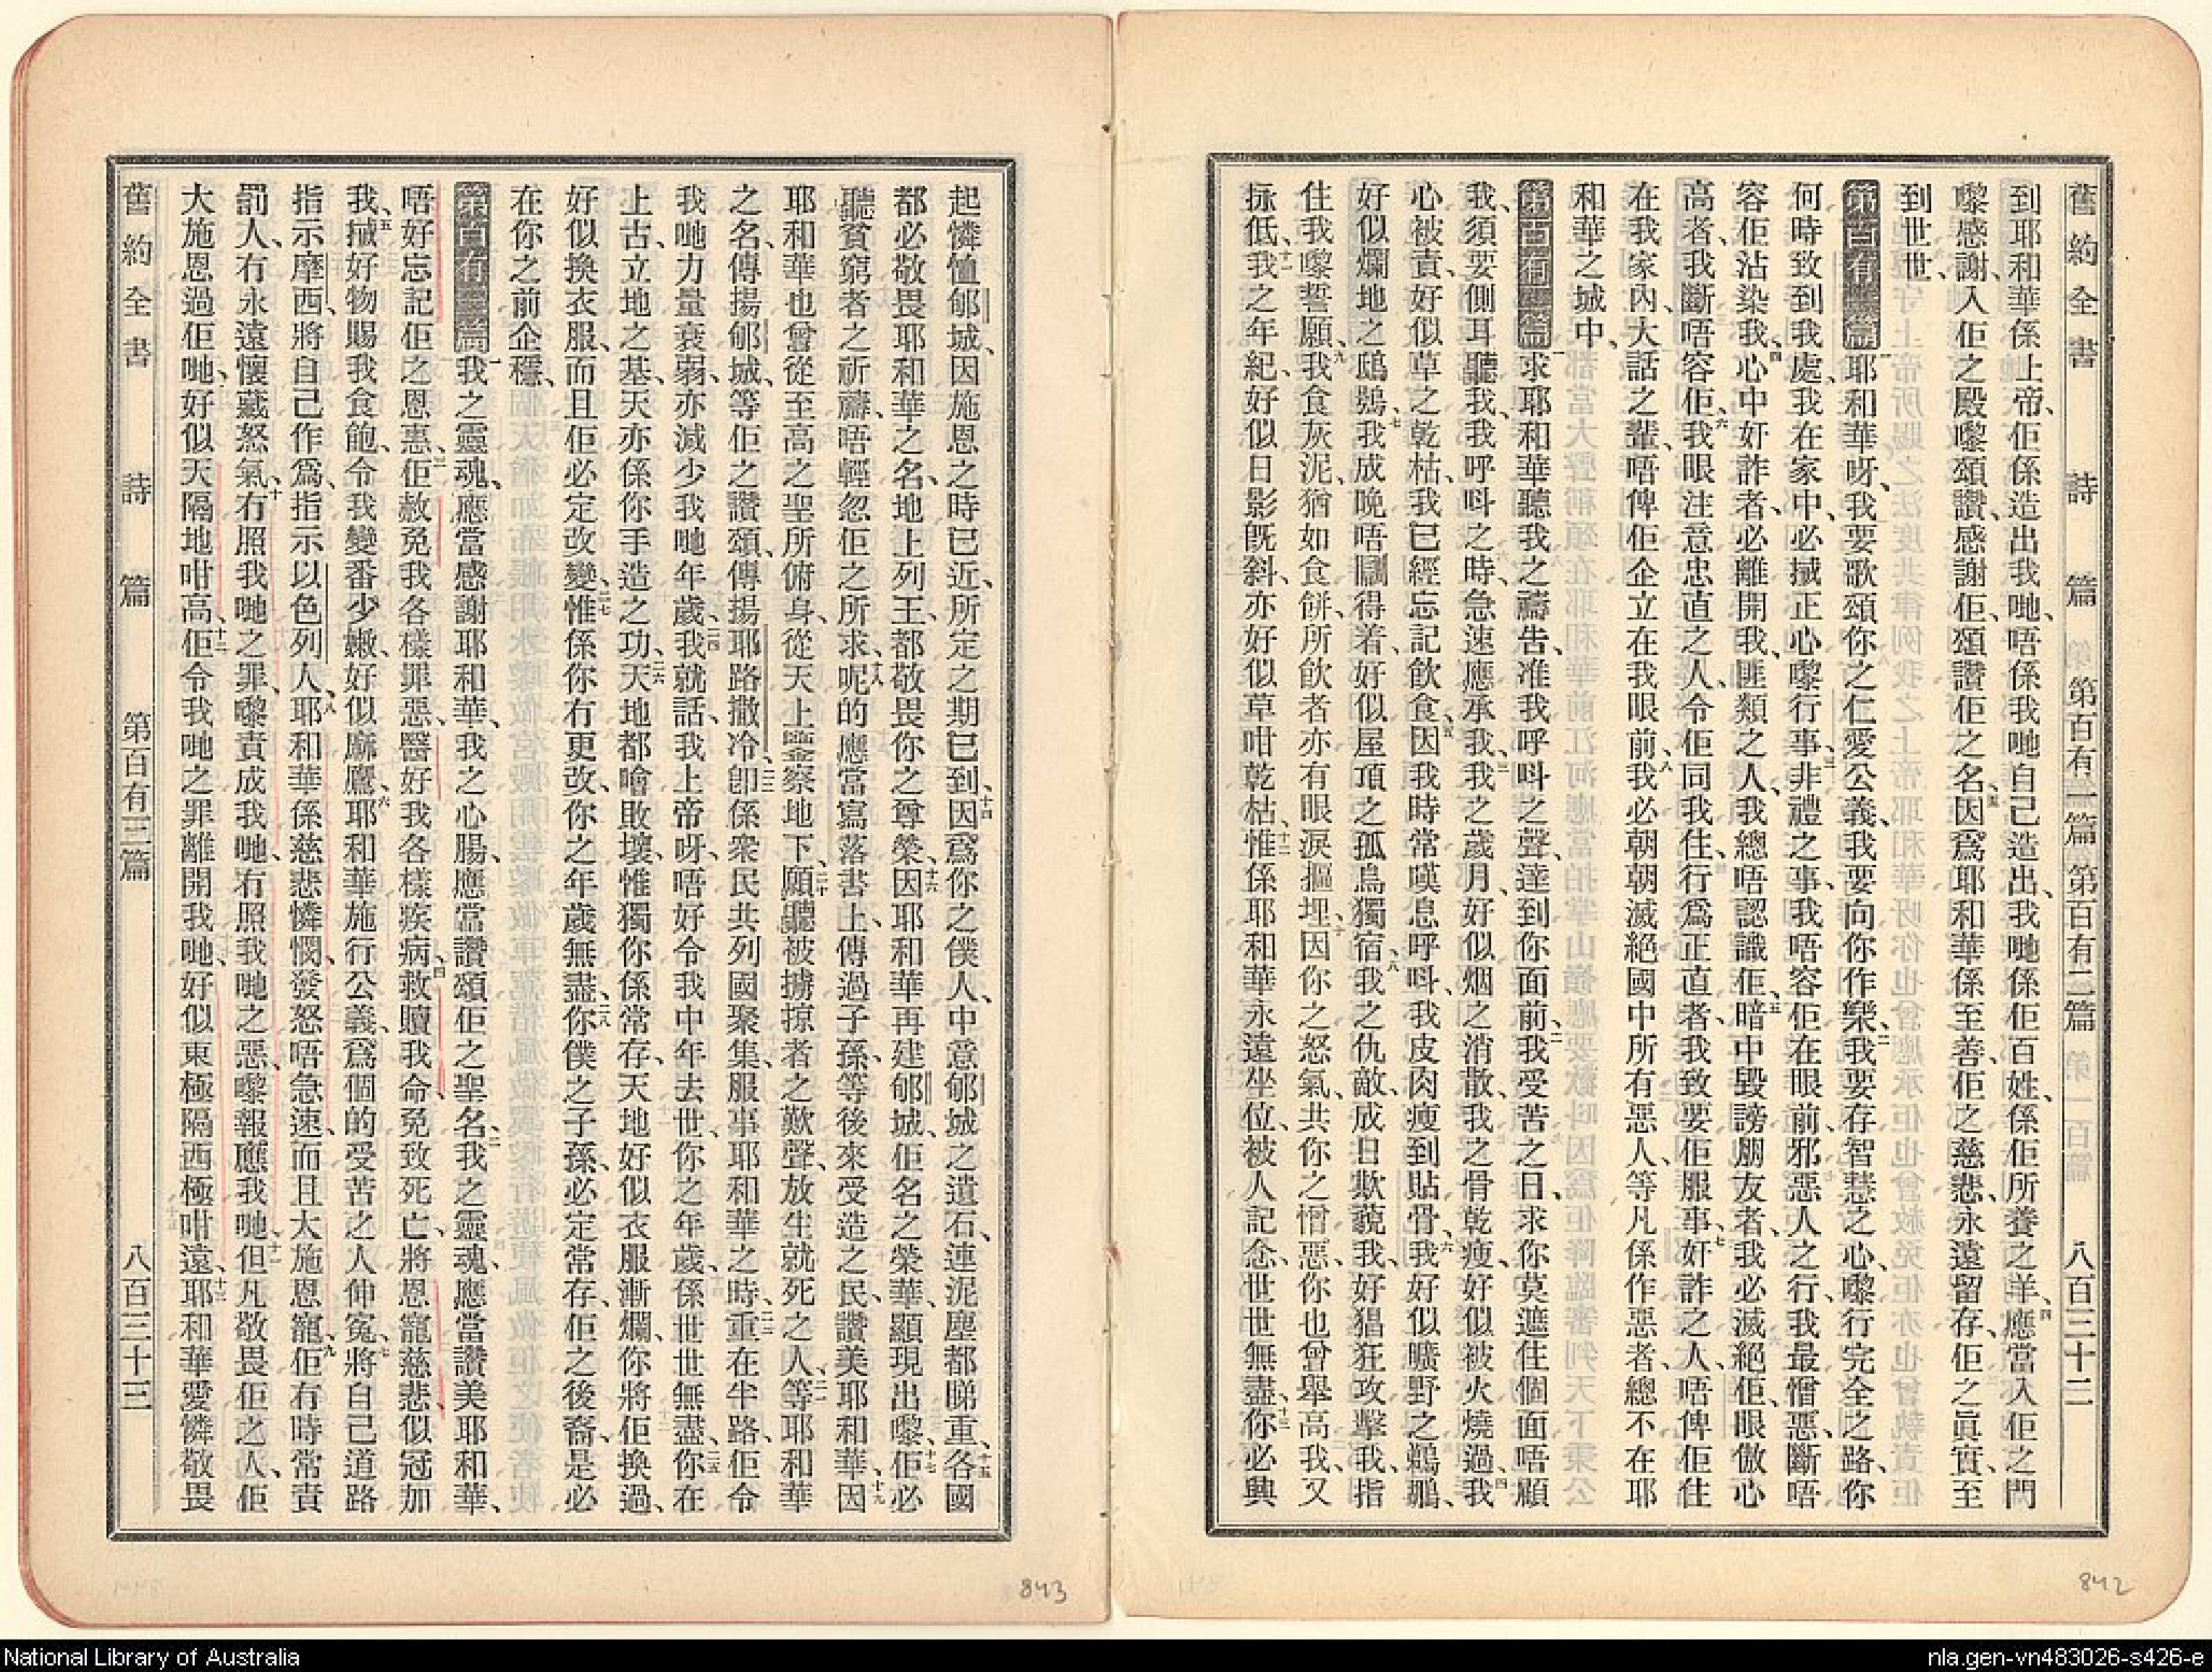 舊約全書 詩篇 第百有一篇 第百有二篇 八百三十二
到耶和華係上帝、佢係造出我哋、唔係我哋自己造出、我哋係佢百姓、係佢所養之羊、四應當入佢之門
嚟感謝、入佢之殿嚟頌讚、感謝佢、頌讚佢之名、五因爲耶和華係至善、佢之慈悲、永遠留存、佢之眞實、至
到世世、
第百有一篇一耶和華呀、我要歌頌你之仁愛公義、我要向你作樂、二我要存智慧之心、嚟行完全之路、你
何時致到我處、我在家中、必搣正心嚟行事、三非禮之事、我唔容佢在眼前、邪惡人之行、我最憎惡、斷唔
容佢沾染我、四心中奸詐者、必離開我、匪類之人、我總唔認識佢、五暗中毀謗朋友者、我必滅絕佢、眼傲心
高者、我斷唔容佢、六我眼注意忠直之人、令佢同我住、行爲正直者、我致要佢服事、七奸詐之人、唔俾佢住
在我家內、大話之輩、唔俾佢企立在我眼前、八我必朝朝滅絕國中所有惡人、等凡係作惡者、總不在耶
和華之城中、
第百有二篇一求耶和華聽我之禱告、准我呼呌之聲、達到你面前、二我受苦之日、求你莫遮住個面唔顧
我、須要側耳聽我、我呼呌之時、急速應承我、三我之歲月、好似烟之消散、我之骨乾瘦、好似被火燒過、四我
心被責、好似草之乾枯、我已經忘記飲食、五因我時常嘆息呼呌、我皮肉瘦到貼骨、六我好似曠野之鵜鶘、
好似爛地之鴟鴞、七我成晚唔瞓得着、好似屋頂之孤鳥獨宿、八我之仇敵、成日欺藐我、好猖狂攻擊我、指
住我嚟誓願、九我食灰泥、猶如食餅、所飲者亦有眼淚摳埋、十因你之怒氣、共你之憎惡、你也曾舉高我、又
抺低、十一我之年紀、好似日影旣斜、亦好似草咁乾枯、十二惟係耶和華永遠坐位、被人記念、世世無盡、十三你必興
起憐恤郇城、因施恩之時已近、所定之期已到、十四因爲你之僕人、中意郇城之遺石、連泥塵都睇重、十五各國
都必敬畏耶和華之名、地上列王、都敬畏你之尊榮、十六因耶和華再建郇城、佢名之榮華、顯現出嚟、十七佢必
聽貧窮者之祈禱、唔輕忽佢之所求、十八呢的應當寫落書上、傳過子孫、等後來受造之民、讚美耶和華、十九因
耶和華也曾從至高之聖所俯身、從天上鑒察地下、二十願聽被擄掠者之歎聲、放生就死之人、二一等耶和華
之名、傳揚郇城、等佢之讚頌、傳揚耶路撒冷、二二卽係衆民共列國聚集、服事耶和華之時、二三重在半路、佢令
我哋力量衰弱、亦減少我哋年歲、二四我就話、我上帝呀、唔好令我中年去世、你之年歲、係世世無盡、二五你在
上古、立地之基、天亦係你手造之功、二六天地都噲敗壞、惟獨你係常存、天地好似衣服漸爛、你將佢換過、
好似換衣服、而且佢必定改變、二七惟係你冇更改、你之年歲無盡、二八你僕之子孫、必定常存、佢之後裔、是必
在你之前企穩、
第百有三篇一我之靈魂、應當感謝耶和華、我之心腸、應當讚頌佢之聖名、二我之靈魂、應當讚美耶和華、
唔好忘記佢之恩惠、三佢赦免我各樣罪惡、醫好我各樣疾病、四救贖我命、免致死亡、將恩寵慈悲、似冠加
我、五搣好物賜我食飽、令我變番少嫩、好似麻鷹、六耶和華施行公義、爲個的受苦之人伸冤、七將自己道路
指示摩西、將自己作爲、指示以色列人、八耶和華係慈悲憐憫、發怒唔急速、而且大施恩寵、九佢冇時常責
罰人、冇永遠懷藏怒氣、十冇照我哋之罪、嚟責成我哋、冇照我哋之惡、嚟報應我哋、十一但凡敬畏佢之人、佢
大施恩過佢哋、好似天隔地咁高、十二佢令我哋之罪離開我哋、好似東極隔西極咁遠、十三耶和華愛憐敬畏
舊約全書 詩篇 第百有三篇 八百三十三
843
842
National Library of Australia
nla.gen-vn483026-s426-e